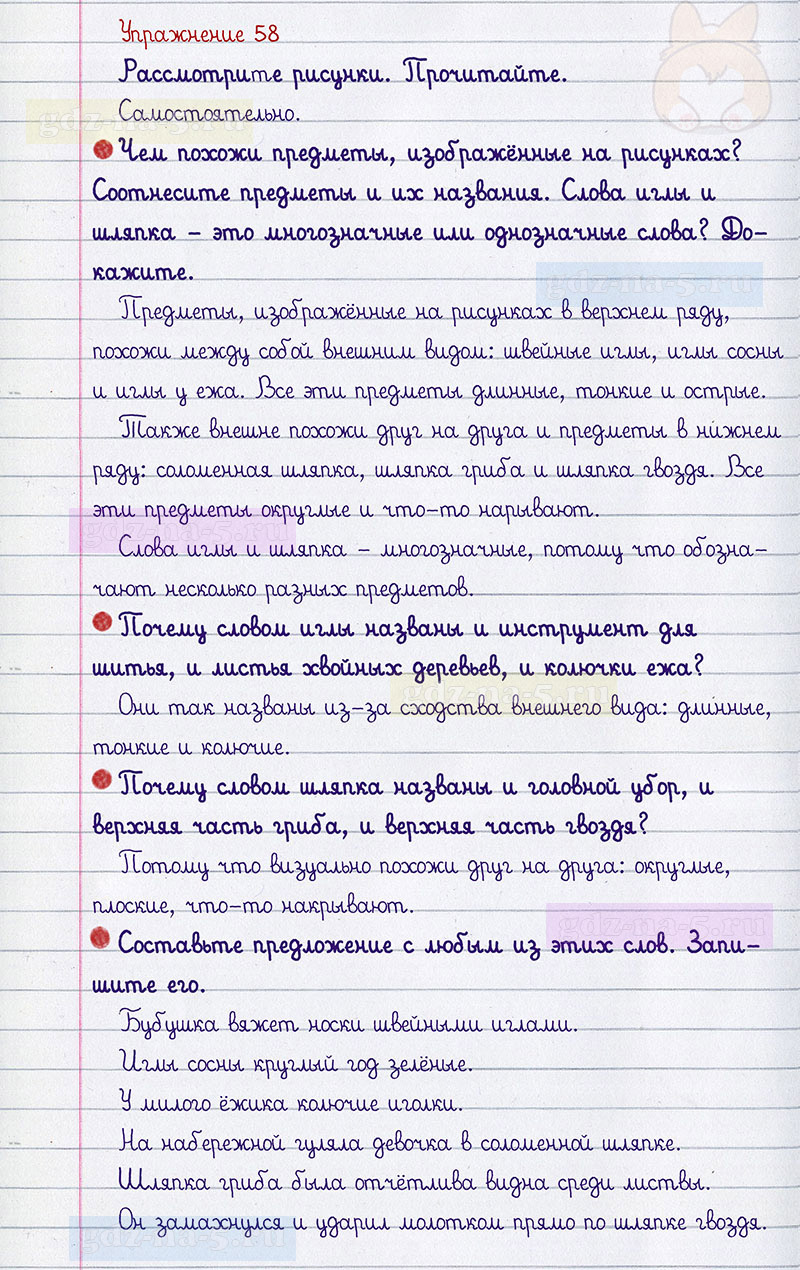 Упражнение 58
Рассмотрите рисунки. Прочитайте.
Самостоятельно.
gdz-na-5.ru
Чем похожи предметы, изображённые на рисунках?
Соотнесите предметы и их названия. Слова иглы и
шляпка – это многозначные или однозначные слова? До-
кажите.
gdz-na-5.ru
Предметы, изображённые на рисунках в верхнем ряду,
похожи между собой внешним видом: швейные иглы, иглы сосны
и иглы у ежа. Все эти предметы длинные, тонкие и острые.
Также внешне похожи друг на друга и предметы в нижнем
ряду: соломенная шляпка, шляпка гриба и шляпка гвоздя. Все
эти предметы округлые и что-то нарывают.
gdz-na-5.ru
Слова иглы и шляпка – многозначные, потому что обозна-
чают несколько разных предметов.
Почему словом иглы названы и инструмент для
шитья, и листья хвойных деревьев, и колючки ежа?
gdz-na-5.ru
Они так названы из-за сходства внешнего вида: длинные,
тонкие и колючие.
Почему словом шляпка названы и головной убор, и
верхняя часть гриба, и верхняя часть гвоздя?
Потому что визуально похожи друг на друга: округлые,
плоские, что-то накрывают.
gdz-na-5.ru
Составьте предложение с любым из этих слов. Запи-
шите его.
Бубушка вяжет носки швейными иглами.
Иглы сосны круглый год зелёные.
У милого ёжика колючие иголки.
На набережной гуляла девочка в соломенной шляпке.
Шляпка гриба была отчётлива видна среди листвы.
Он замахнулся и ударил молотком прямо по шляпке гвоздя.
gdz-na-5.ru